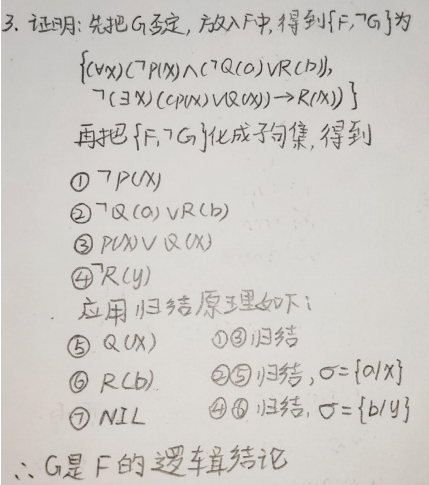 3. 证明:先把G否定,放入F中,得到{F,¬G}为
{(∀x)(¬P(x)∧(¬Q(a)∨R(b)),
¬(∃x)((P(x)∨Q(x))→R(x))}
再把{F,¬G}化成子句集,得到
① ¬P(x)
② ¬Q(a)∨R(b)
③ P(x)∨Q(x)
④ ¬R(y)
应用归结原理如下:
⑤ Q(x) ①③归结
⑥ R(b) ②⑤归结,σ={a/x}
⑦ NIL ④⑥归结,σ={b/y}
∴G是F的逻辑结论